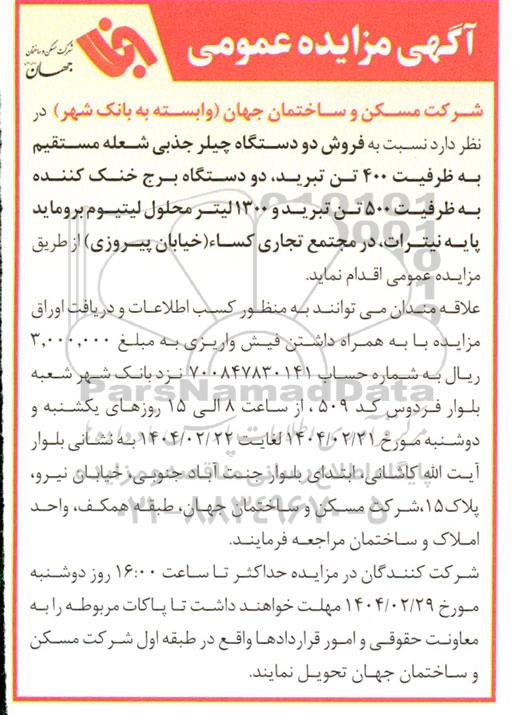 آگهی مزایده عمومی
شرکت مسکن و ساختمان
جهان
شرکت مسکن و ساختمان جهان (وابسته به بانک شهر) در
نظر دارد نسبت به فروش دو دستگاه چیلر جذبی شعله مستقیم
به ظرفیت ۴۰۰ تن تبرید، دو دستگاه برج خنک کننده
به ظرفیت ۵۰۰ تن تبرید و ۱۳۰۰ لیتر محلول لیتیوم بروماید
پایه نیترات، در مجتمع تجاری کساء (خیابان پیروزی) از طریق
مزایده عمومی اقدام نماید.
علاقه مندان می توانند به منظور کسب اطلاعات و دریافت اوراق
مزایده با به همراه داشتن فیش واریزی به مبلغ ۳,۰۰۰,۰۰۰
ریال به شماره حساب ۷۰۰۸۴۷۸۳۰۱۴۱ نزد بانک شهر شعبه
بلوار فردوس کد ۵۰۹، از ساعت ۸ الی ۱۵ روزهای یکشنبه و
دوشنبه مورخ ۱۴۰۴/۰۲/۲۱ لغایت ۱۴۰۴/۰۲/۲۲ به نشانی بلوار
آیت الله کاشانی، ابتدای بلوار جنت آباد جنوبی، خیابان نیرو،
پلاک۱۵،شرکت مسکن و ساختمان جهان، طبقه همکف، واحد
املاک و ساختمان مراجعه فرمایند.
شرکت کنندگان در مزایده حداکثر تا ساعت ۱۶:۰۰ روز دوشنبه
مورخ ۱۴۰۴/۰۲/۲۹ مهلت خواهند داشت تا پاکات مربوطه را به
معاونت حقوقی و امور قراردادها واقع در طبقه اول شرکت مسکن
و ساختمان جهان تحویل نمایند.
ParsNamadData
۰۲۱-۸۸۳۴۹۶۷۰-۵